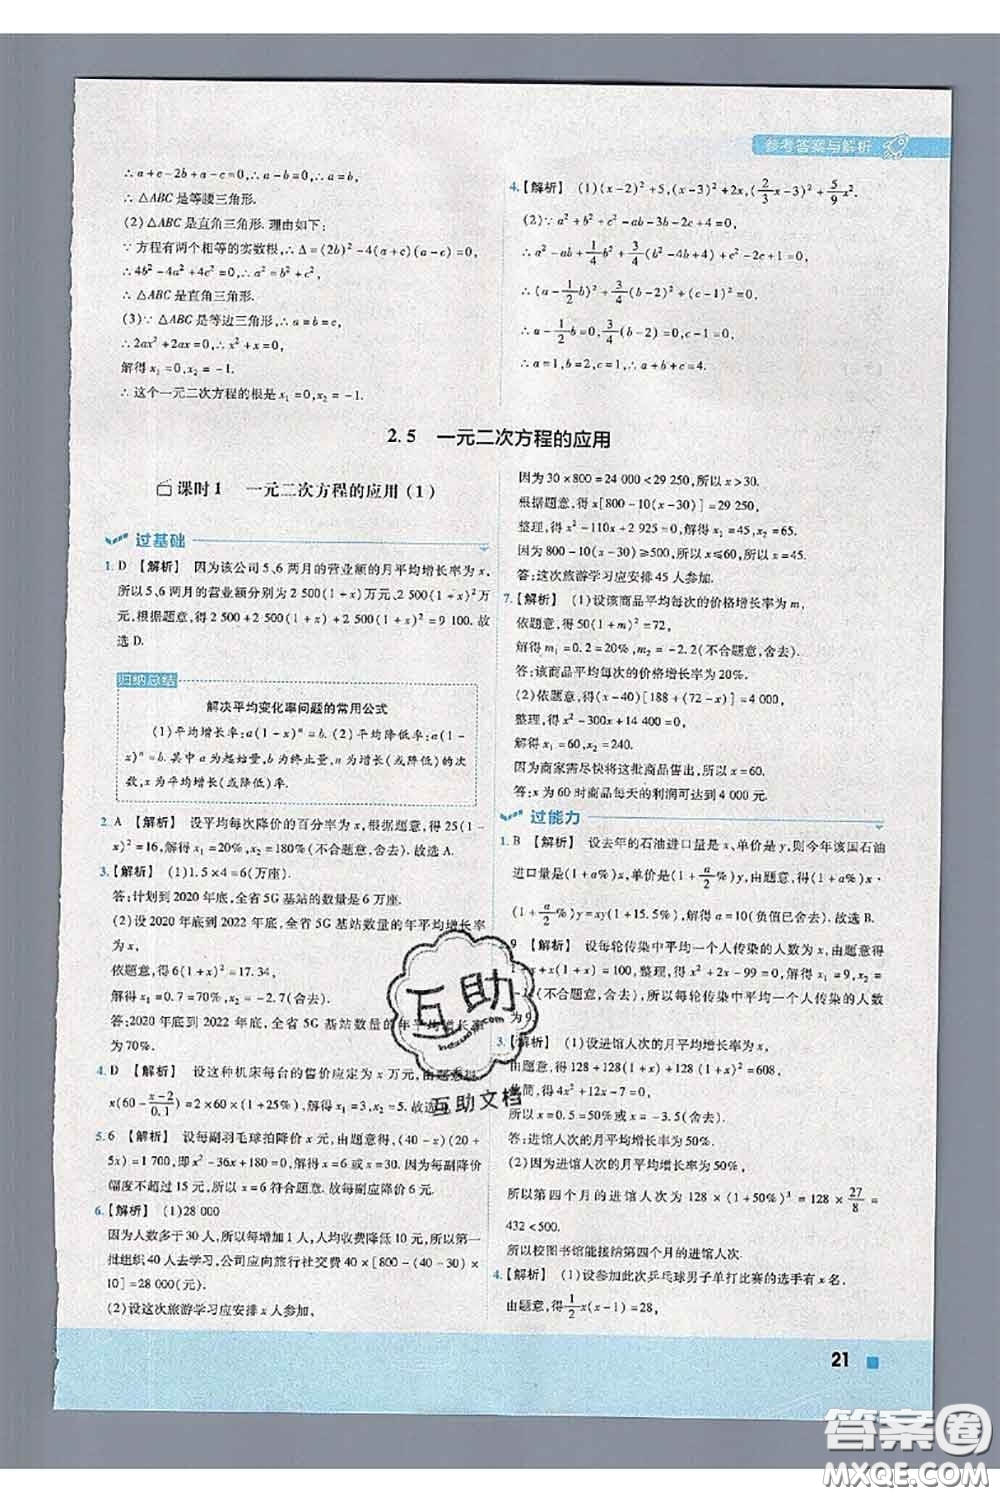 参考答案与解析
∴a+c-2b+a-c=0,∴a-b=0,∴a=b,
∴△ABC是等腰三角形.
(2)△ABC是直角三角形. 理由如下:
∵方程有两个相等的实数根,∴Δ=(2b)²-4(a+c)(a-c)=0,
∴4b²-4a²+4c²=0,∴a²=b²+c²,
∴△ABC是直角三角形.
(3)∵△ABC是等边三角形,∴a=b=c,
∴2ax²+2ax=0,∴x²+x=0,
解得x₁=0,x₂=-1.
∴这个一元二次方程的根是x₁=0,x₂=-1.
4.【解析】 (1)(x-2)²+5,(x-3)²+2x,(2/3x-3)²+5/9x².
(2)∵a²+b²+c²-ab-3b-2c+4=0,
∴a²-ab+1/4b²+3/4(b²-4b+4)+c²-2c+1=0,
∴(a-1/2b)²+3/4(b-2)²+(c-1)²=0,
∴a-1/2b=0,3/4(b-2)=0,c-1=0,
∴a=1,b=2,c=1,∴a+b+c=4.
2.5 一元二次方程的应用
课时1 一元二次方程的应用(1)
过基础
1.D 【解析】 因为该公司5、6两月的营业额的月平均增长率为x,
所以5、6两月的营业额分别为2 500(1+x)万元、2 500(1+x)²万
元,根据题意,得2 500+2 500(1+x)+2 500(1+x)²=9 100. 故
选D.
归纳总结
解决平均变化率问题的常用公式
(1)平均增长率:a(1+x)ⁿ=b. (2)平均降低率:a(1-
x)ⁿ=b. 其中a为起始量,b为终止量,n为增长(或降低)的次
数,x为平均增长(或降低)率.
2.A 【解析】 设平均每次降价的百分率为x,根据题意,得25(1-
x)²=16,解得x₁=20%,x₂=180%(不合题意,舍去). 故选A.
3.【解析】 (1)1.5×4=6(万座).
答:计划到2020年底,全省5G基站的数量是6万座.
(2)设2020年底到2022年底,全省5G基站数量的年平均增长率
为x,
依题意,得6(1+x)²=17.34,
解得x₁=0.7=70%,x₂=-2.7(舍去).
答:2020年底到2022年底,全省5G基站数量的年平均增长率
为70%.
4.D 【解析】 设这种机床每台的售价应定为x万元,由题意得,
x(60-(x-2)/0.1)=2×60×(1+25%),解得x₁=3,x₂=5. 故选
5.6 【解析】 设每副羽毛球拍降价x元,由题意得,(40-x)(20+
5x)=1 700,即x²-36x+180=0,解得x=6或x=30. 因为每副降价
幅度不超过15元,所以x=6符合题意. 故每副应降价6元.
6.【解析】 (1)28 000
因为人数多于30人,所以每增加1人,人均收费降低10元,所以第一
批组织40人去学习,公司应向旅行社交费40×[800-(40-30)×
10]=28 000(元).
(2)设这次旅游学习应安排x人参加,
因为30×800=24 000<29 250,所以x>30.
根据题意,得x[800-10(x-30)]=29 250,
整理,得x²-110x+2 925=0,解得x₁=45,x₂=65.
因为800-10(x-30)≥500,所以x≤60,所以x=45.
答:这次旅游学习应安排45人参加.
7.【解析】 (1)设该商品平均每次的价格增长率为m,
依题意,得50(1+m)²=72,
解得m₁=0.2=20%,m₂=-2.2(不合题意,舍去).
答:该商品平均每次的价格增长率为20%.
(2)依题意,得(x-40)[188+(72-x)]=4 000,
整理,得x²-300x+14 400=0,
解得x₁=60,x₂=240.
因为商家需尽快将这批商品售出,所以x=60.
答:x为60时商品每天的利润可达到4 000元.
过能力
1.B 【解析】 设去年的石油进口量是x、单价是y,则今年该国石油
进口量是(1+a%)x、单价是(1+a/2%)y,由题意,得(1+a%)x·
(1+a/2%)y=xy(1+15.5%),解得a=10(负值已舍去). 故选B.
9 【解析】 设每轮传染中平均一个人传染的人数为x,由题意得
=100,整理,得x²+2x-99=0,解得x₁=9,x₂=
(不合题意,舍去),所以每轮传染中平均一个人传染的人数
为9.
3.【解析】 (1)设进馆人次的月平均增长率为x,
由题意,得128+128(1+x)+128(1+x)²=608,
化简,得4x²+12x-7=0,
所以x=0.5=50%或x=-3.5(舍去).
答:进馆人次的月平均增长率为50%.
(2)因为进馆人次的月平均增长率为50%,
所以第四个月的进馆人次为128×(1+50%)³=128×27/8=
432<500.
所以校图书馆能接纳第四个月的进馆人次.
4.【解析】 (1)设参加此次乒乓球男子单打比赛的选手有x名.
由题意,得1/2x(x-1)=28,
互助
互助文档
21
答案圈
MXQE.COM